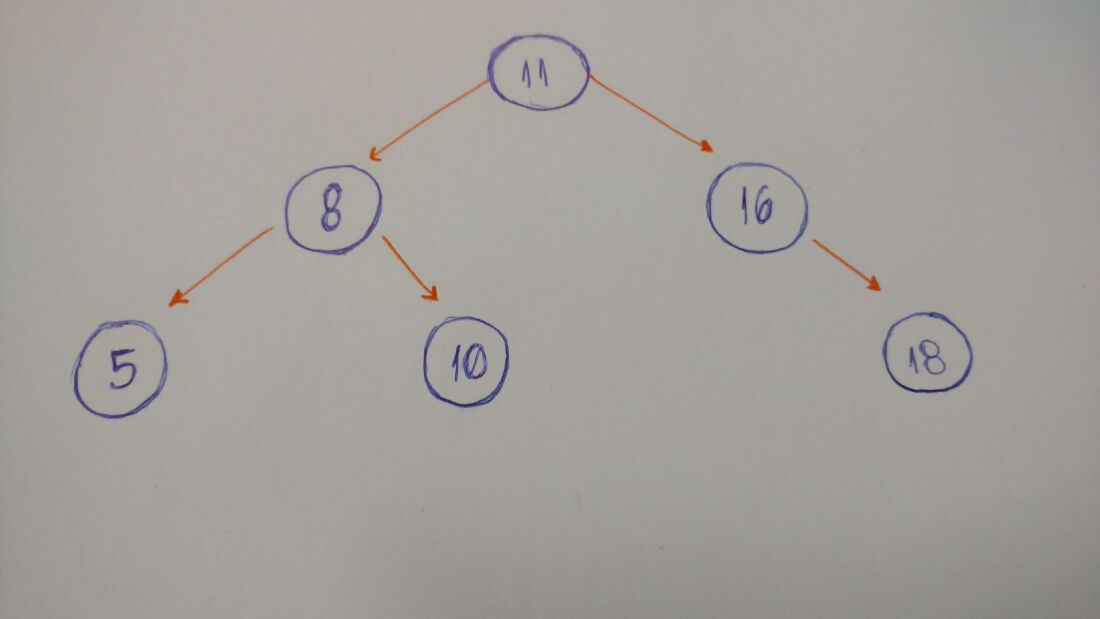 11
8 16
5 10 18